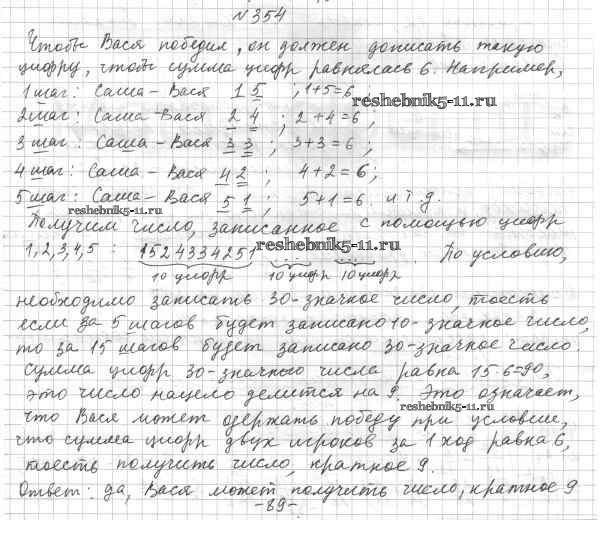 №354
Чтобы Вася победил, он должен дописать такую
цифру, чтобы сумма цифр равнялась 6. Например,
1 шаг: Саша – Вася 1 5 ; 1+5=6 ;
reshebnik5-11.ru
2 шаг: Саша – Вася 2 4 ; 2+4=6 ;
3 шаг: Саша – Вася 3 3 ; 3+3=6 ;
4 шаг: Саша – Вася 4 2 ; 4+2=6 ;
5 шаг: Саша – Вася 5 1 ; 5+1=6. и т.д.
reshebnik5-11.ru
Получим число, записанное с помощью цифр
1,2,3,4,5 : 1524334251 ... ... . По условию,
reshebnik5-11.ru
10 цифр 10 цифр 10 цифр
необходимо записать 30-значное число, тоесть
если за 5 шагов будет записано 10-значное число,
то за 15 шагов будет записано 30-значное число.
Сумма цифр 30-значного числа равна 15·6=90,
это число нацело делится на 9. Это означает,
reshebnik5-11.ru
что Вася может одержать победу при условии,
что сумма цифр двух игроков за 1 ход равна 6,
тоесть получить число, кратное 9.
Ответ: да, Вася может получить число, кратное 9
-89-